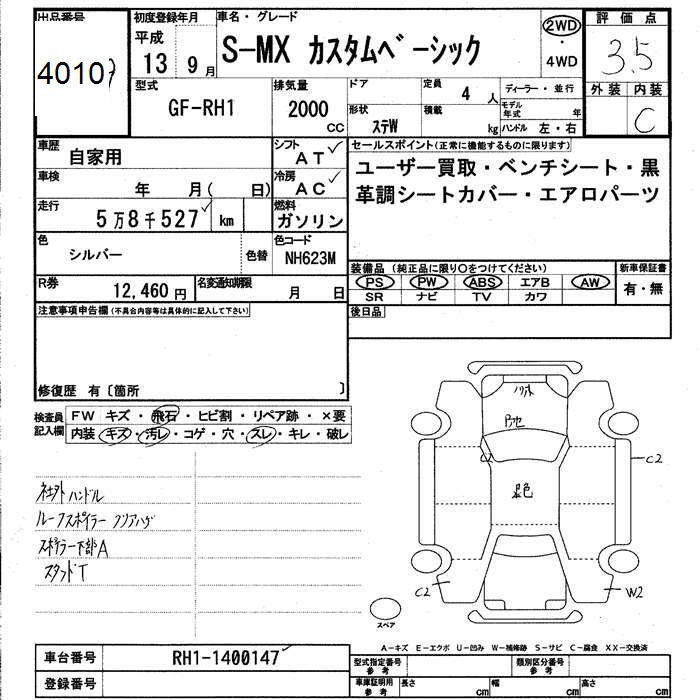 出品番号
4010
初度登録年月
平成
13 9 月
車名・グレード
S-MX カスタムベーシック
2WD
・
4WD
評価点
3.5
外装 内装
C
型式
GF-RH1
排気量
2000
CC
ドア
形状
ステW
定員
4 人
積載
kg
ディーラー・並行
モデル年式 年
ハンドル 左・右
車歴
自家用
シフト
AT
車検
年 月( 日)
冷房
AC
走行
5万8千527 km
燃料
ガソリン
色
シルバー
色替
色コード
NH623M
R券
12,460 円
名変通知期限
月 日
セールスポイント(正常に機能するものに限ります)
ユーザー買取・ベンチシート・黒
革調シートカバー・エアロパーツ
装備品 (純正品に限り○をつけてください)
PS PW ABS エアB AW
SR ナビ TV カワ
新車保証書
有・無
後日品
注意事項申告欄(不具合内容等は具体的に記入して下さい)
修復歴 有〔箇所 〕
検査員
記入欄
FW キズ・飛石・ヒビ割・リペア跡・×要
内装 キズ・汚レ・コゲ・穴・スレ・キレ・破レ
社外ハンドル
ルーフスポイラークリアハゲ
スポイラー下部A
スタッドT
C2
C2
W2
スペア
A-キズ E-エクボ U-凹み W-補修跡 S-サビ C-腐食 XX-交換済
車台番号
RH1-1400147
登録番号
型式指定番号
参考
類別区分番号
参考
車庫証明用
参考
長さ cm 幅 cm 高さ cm